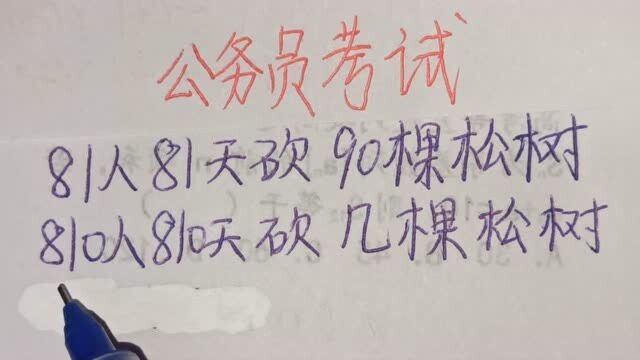 公务员考试
81人81天砍90棵松树
810人810天砍几棵松树